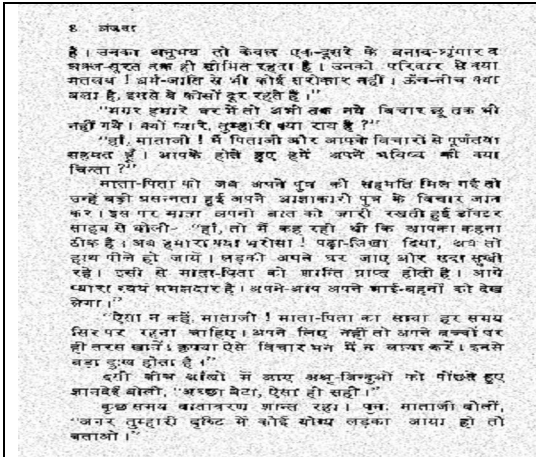 8 मंजवा
है। उनका अनुभव तो केवल एक-दूसरे के बनाव-शृंगार व
शक्ल-सूरत तक ही सीमित रहता है। उनको परिवार से क्या
मतलब ! धर्म-जाति से भी कोई सरोकार नहीं। ऊँच-नीच क्या
बला है, इससे वे कोसों दूर रहते हैं।"
"मगर हमारे घर में तो अभी तक नये विचार छू तक भी
नहीं गये। क्यों प्यारे, तुम्हारी क्या राय है ?"
"हाँ, माताजी ! मैं पिताजी और आपके विचारों से पूर्णतया
सहमत हूँ। आपके होते हुए हमें अपने भविष्य की क्या
चिन्ता ?"
माता-पिता को जब अपने पुत्र की सहमति मिल गई तो
उन्हें बड़ी प्रसन्नता हुई अपने आज्ञाकारी पुत्र के विचार जान
कर। इस पर माता अपनी बात को जारी रखती हुई डॉक्टर
साहब से बोली- "हाँ, तो मैं कह रही थी कि आपका कहना
ठीक है। अब हमारा क्या भरोसा ! पढ़ा-लिखा दिया, अब तो
हाथ पीले हो जायें। लड़की अपने घर जाए और सदा सुखी
रहे। इसी से माता-पिता को शान्ति प्राप्त होती है। आगे
प्यारा स्वयं समझदार है। अपने-आप अपने भाई-बहनों को देख
लेगा।"
"ऐसा न कहें, माताजी ! माता-पिता का साया हर समय
सिर पर रहना चाहिए। अपने लिए नहीं तो अपने बच्चों पर
ही तरस खायें। कृपया ऐसे विचार मन में न लाया करें। इनसे
बड़ा दुःख होता है।"
इसी बीच आँखों में आए अश्रु-बिन्दुओं को पोंछते हुए
ज्ञानदेई बोली, "अच्छा बेटा, ऐसा ही सही।"
कुछ समय वातावरण शान्त रहा। पुनः माताजी बोलीं,
"अगर तुम्हारी दृष्टि में कोई योग्य लड़का आया हो तो
बताओ।"